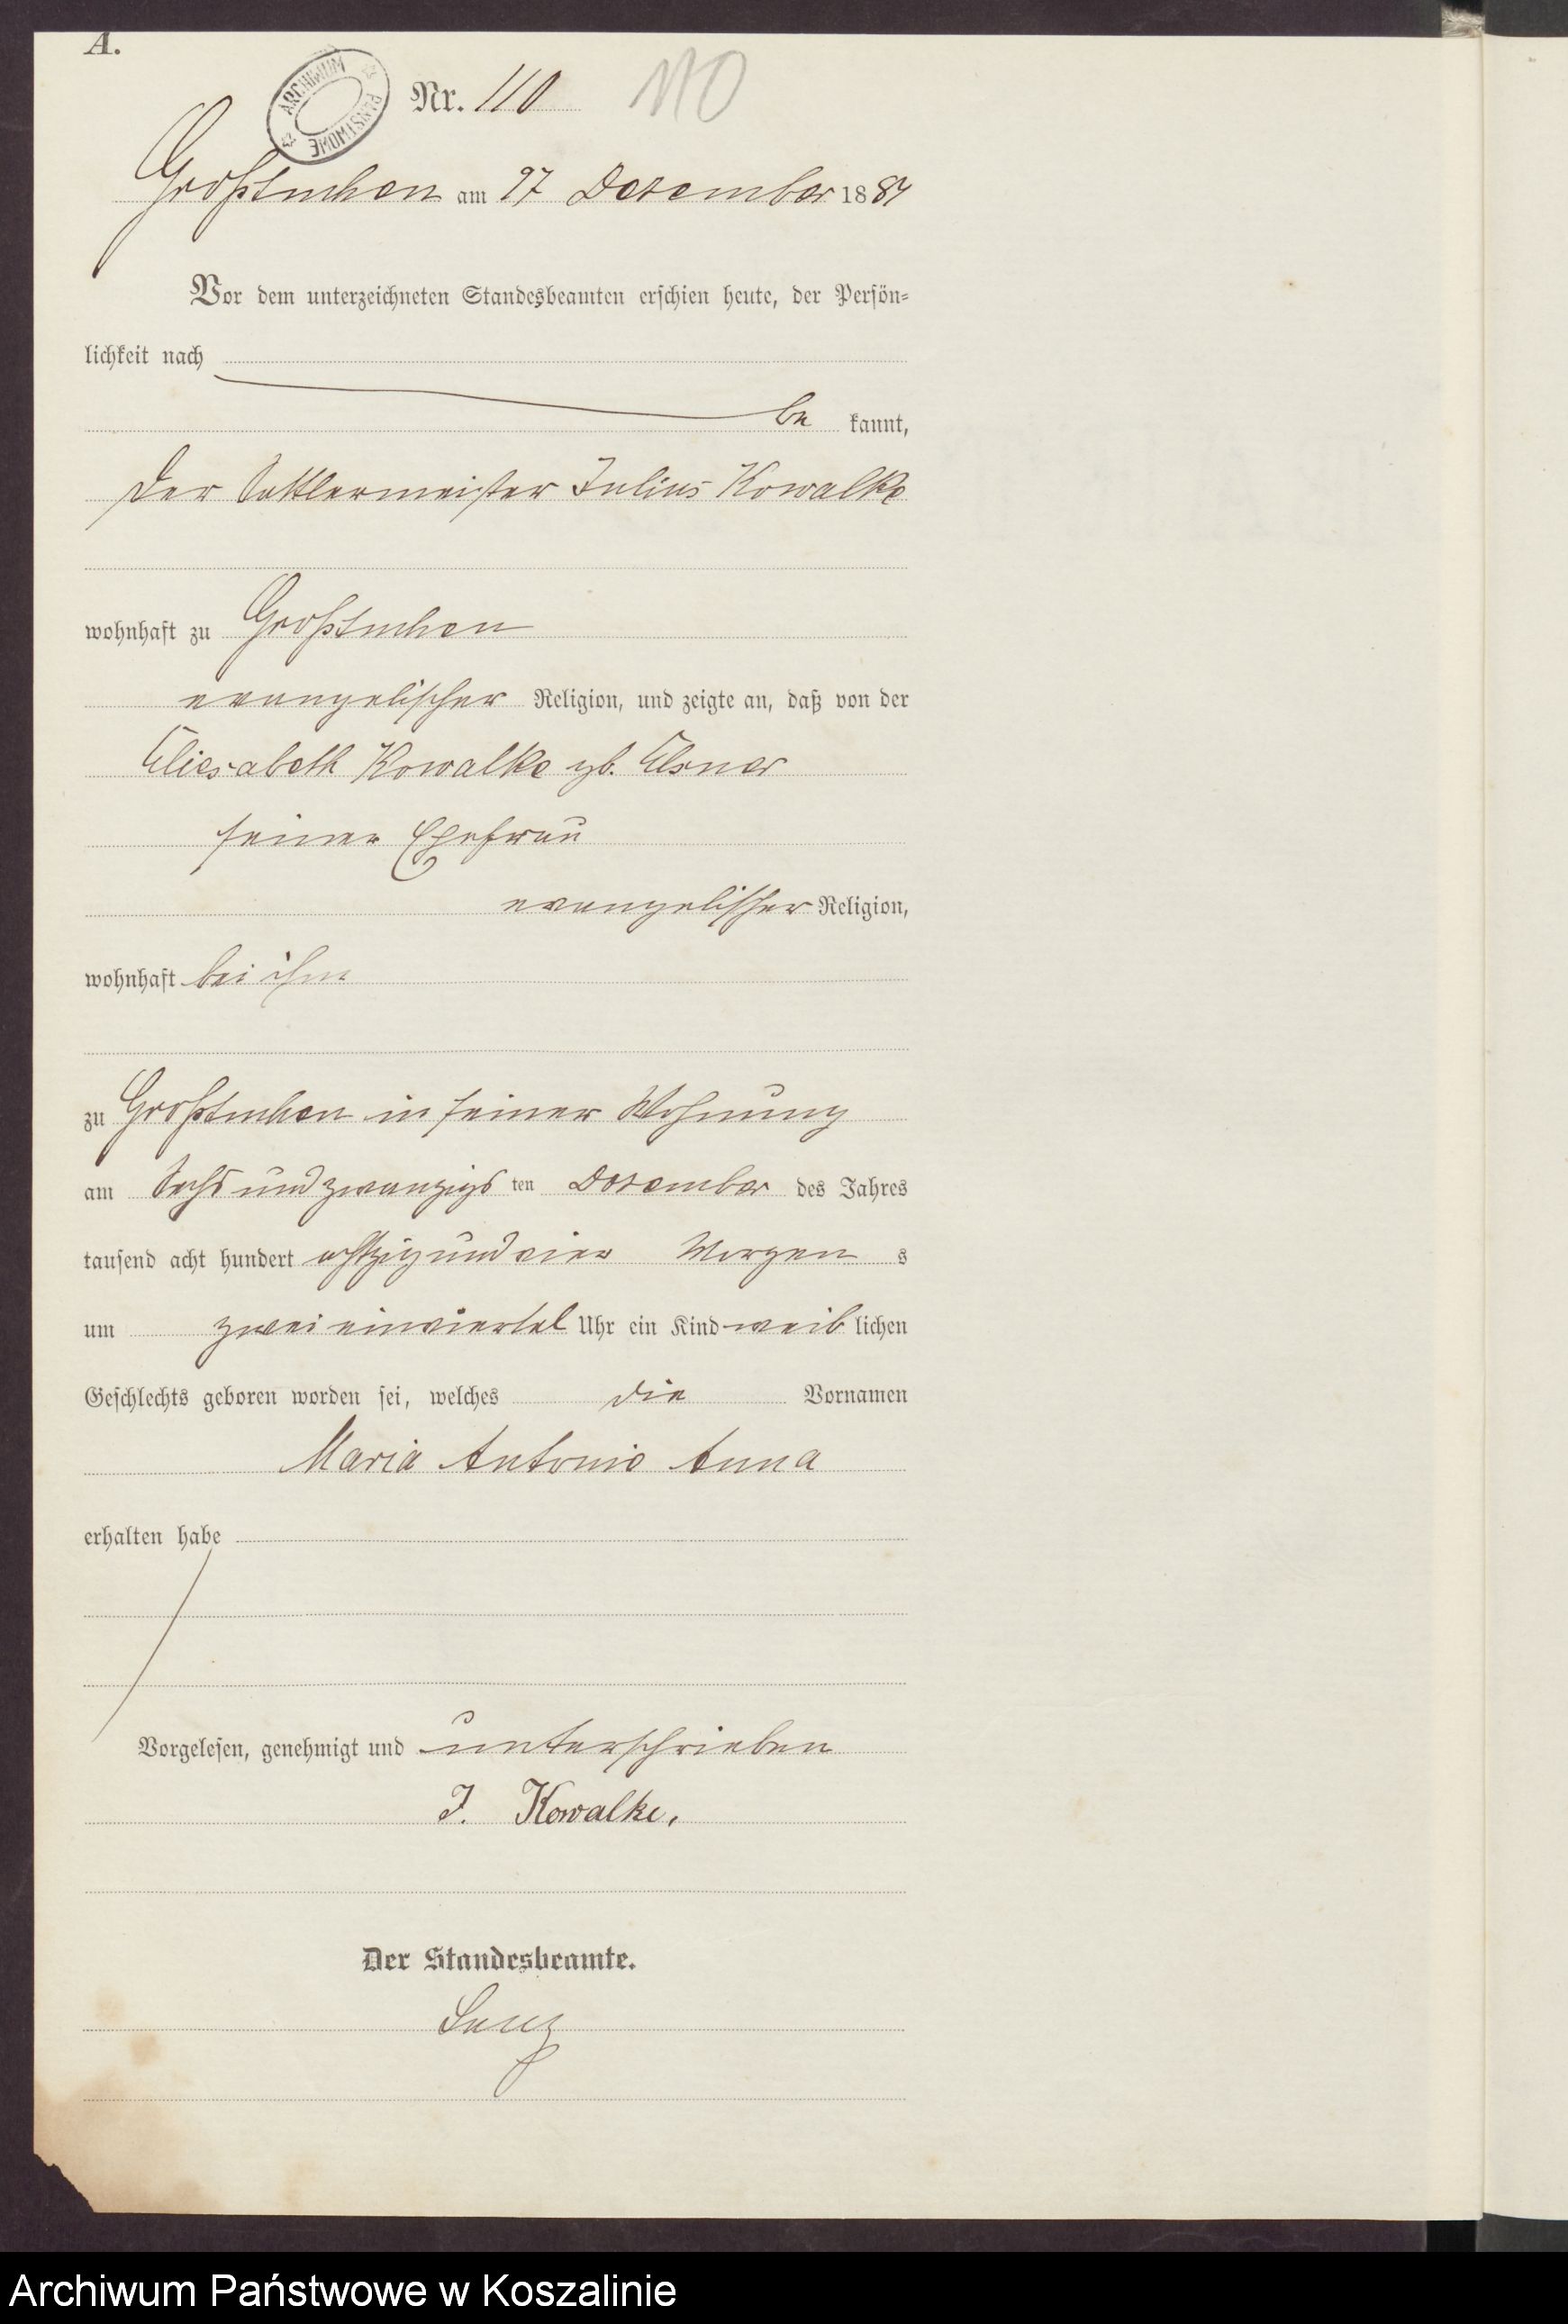 A.
ARCHIWUM PAŃSTWOWE
Nr. 110 110
Großtuchen am 27 Dezember 1884
Vor dem unterzeichneten Standesbeamten erschien heute, der Persön-
lichkeit nach
be kannt,
der Sattlermeister Julius Kowalke
wohnhaft zu Großtuchen
evangelischer Religion, und zeigte an, daß von der
Eliesabeth Kowalke gb. Elsner
seiner Ehefrau
evangelischer Religion,
wohnhaft bei ihm
zu Großtuchen in seiner Wohnung
am Sechs und zwanzigs ten Dezember des Jahres
tausend acht hundert achtzig und vier Morgen s
um zwei einviertel Uhr ein Kind weib lichen
Geschlechts geboren worden sei, welches die Vornamen
Maria Antonie Anna
erhalten habe
Vorgelesen, genehmigt und unterschrieben
J. Kowalke.
Der Standesbeamte.
Archiwum Państwowe w Koszalinie